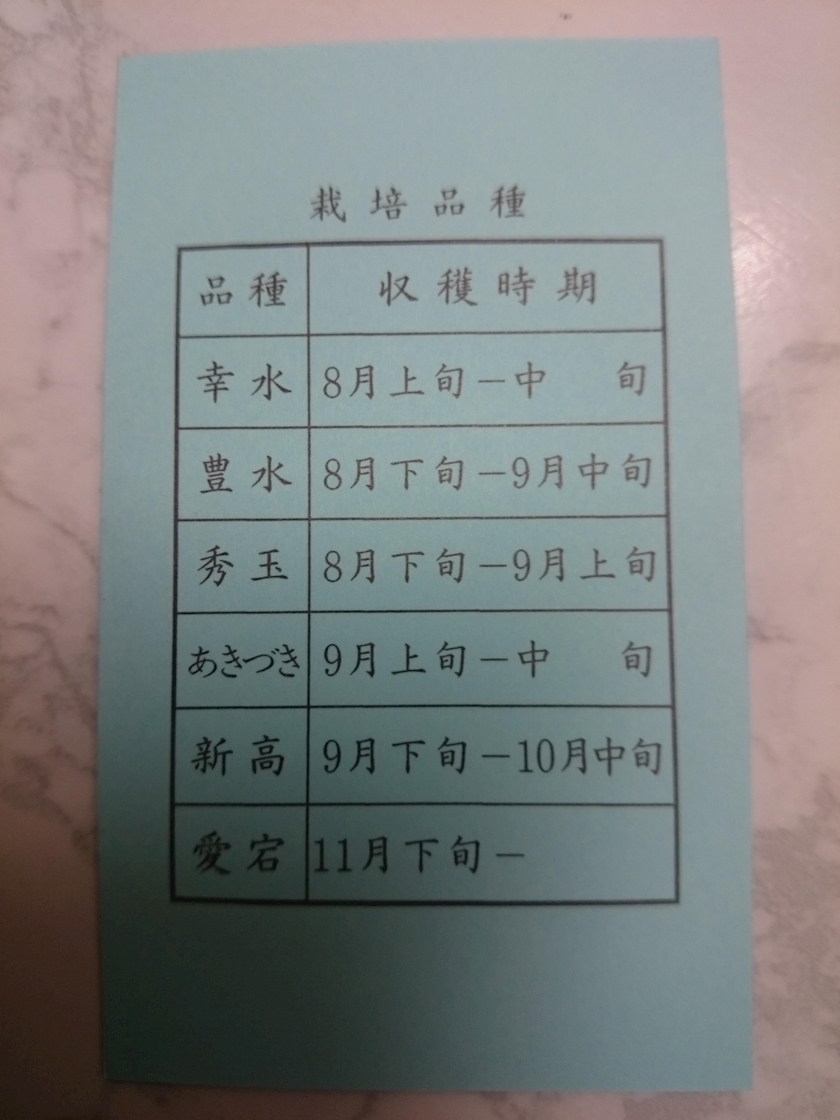 栽培品種
品種 収穫時期
幸水 8月上旬－中 旬
豊水 8月下旬－9月中旬
秀玉 8月下旬－9月上旬
あきづき 9月上旬－中 旬
新高 9月下旬－10月中旬
愛宕 11月下旬－